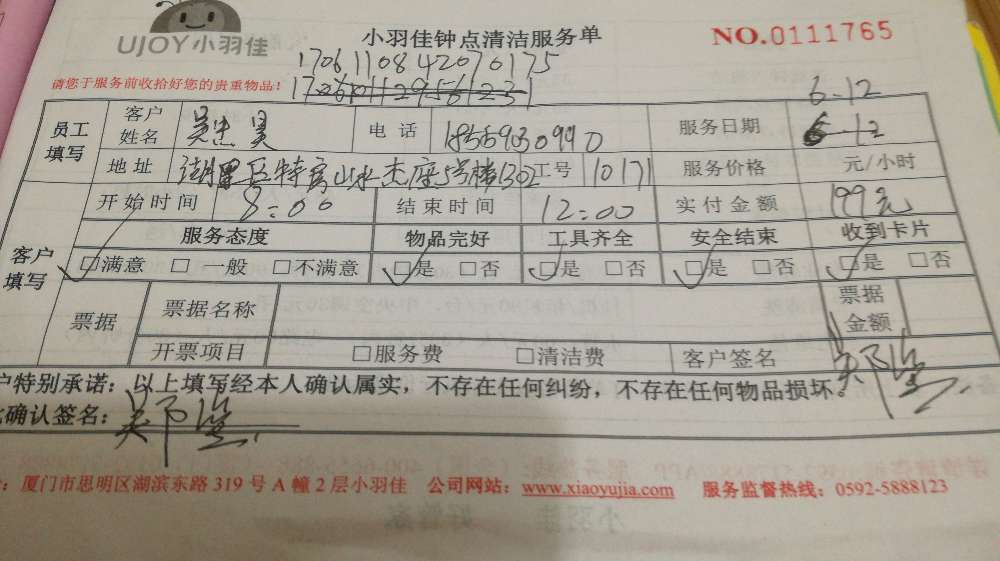 UJOY小羽佳
小羽佳钟点清洁服务单
NO.0111765
1706110842070175
请您于服务前收拾好您的贵重物品!
6-12
员工填写 客户姓名 电话 服务日期 6-12
地址 湖里区特房山水杰座5号楼1302 工号 10171 服务价格 元/小时
客户填写 开始时间 8:00 结束时间 12:00 实付金额 199元
服务态度 物品完好 工具齐全 安全结束 收到卡片
☑满意 □一般 □不满意 ☑是 □否 ☑是 □否 ☑是 □否 ☑是 □否
票据 票据名称 票据金额
开票项目 □服务费 □清洁费 客户签名
户特别承诺:以上填写经本人确认属实,不存在任何纠纷,不存在任何物品损坏。
确认签名:
:厦门市思明区湖滨东路 319 号 A 幢 2 层小羽佳 公司网站:www.xiaoyujia.com 服务监督热线:0592-5888123